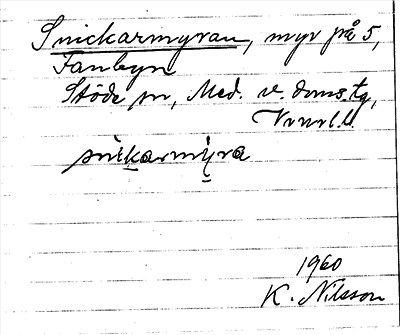 Snickarmyran, myr på 5,
Fanbyn
Stöde sn, Med. v. doms. tg,
Vnrl. l.
snikarmyra
1960
K. Nilsson